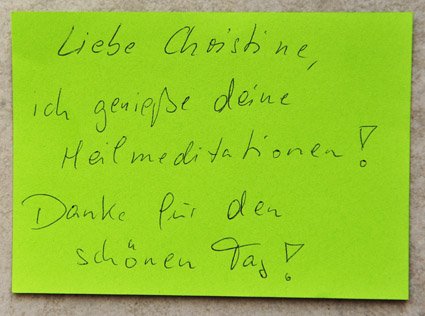 Liebe Christine,
ich genieße deine
Heilmeditationen!
Danke für den
schönen Tag!